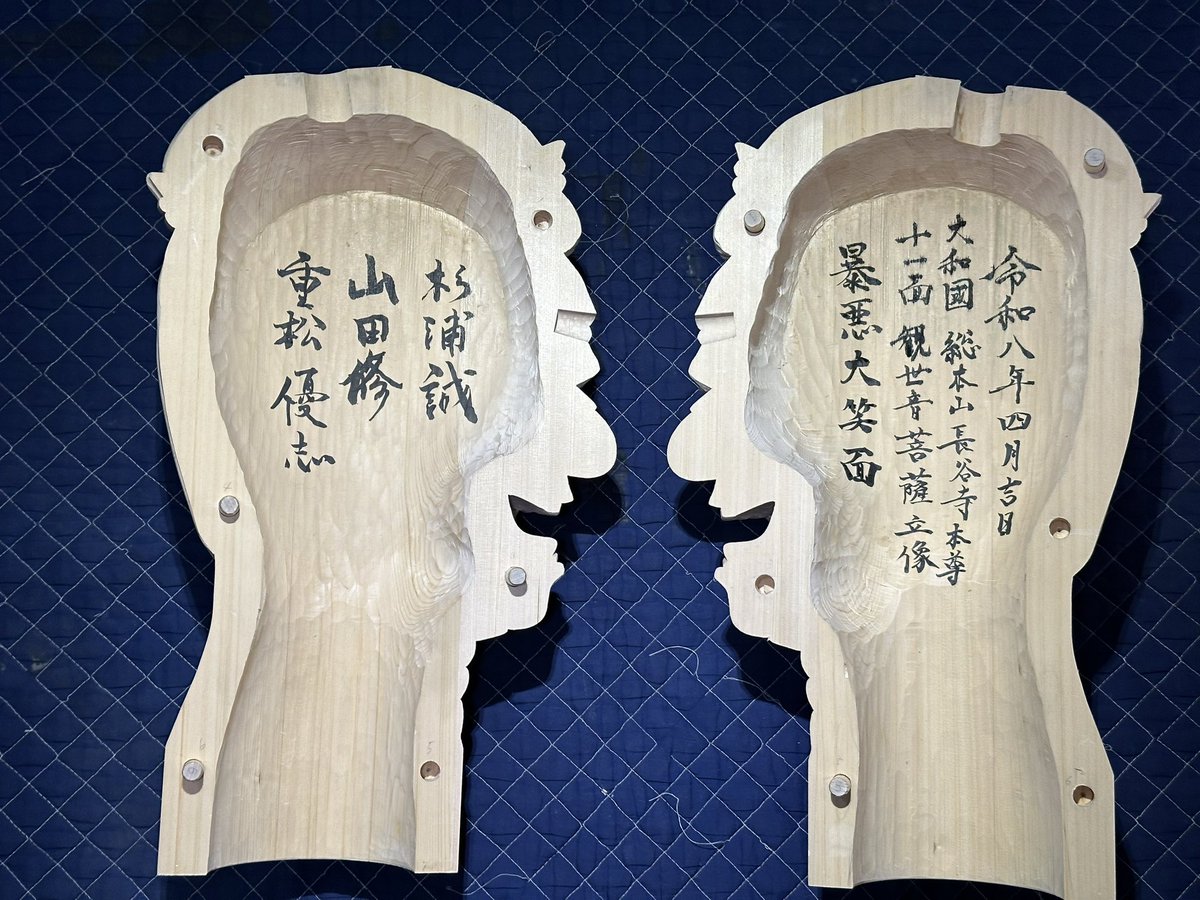 令和八年四月吉日
大和國 総本山長谷寺本尊
十一面観世音菩薩立像
暴悪大笑面
杉浦誠
山田修
重松優志
5
6
5
6